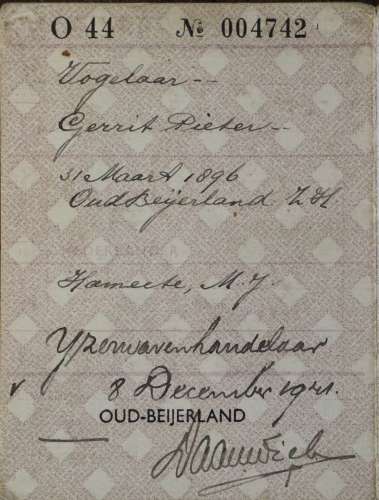 O 44 № 004742
Vogelaar--
Gerrit Pieter--
31 Maart 1896
Oud Beijerland Z.H
Hameete, M.J.
Yzerwarenhandelaar
8 December 1941.
OUD-BEIJERLAND